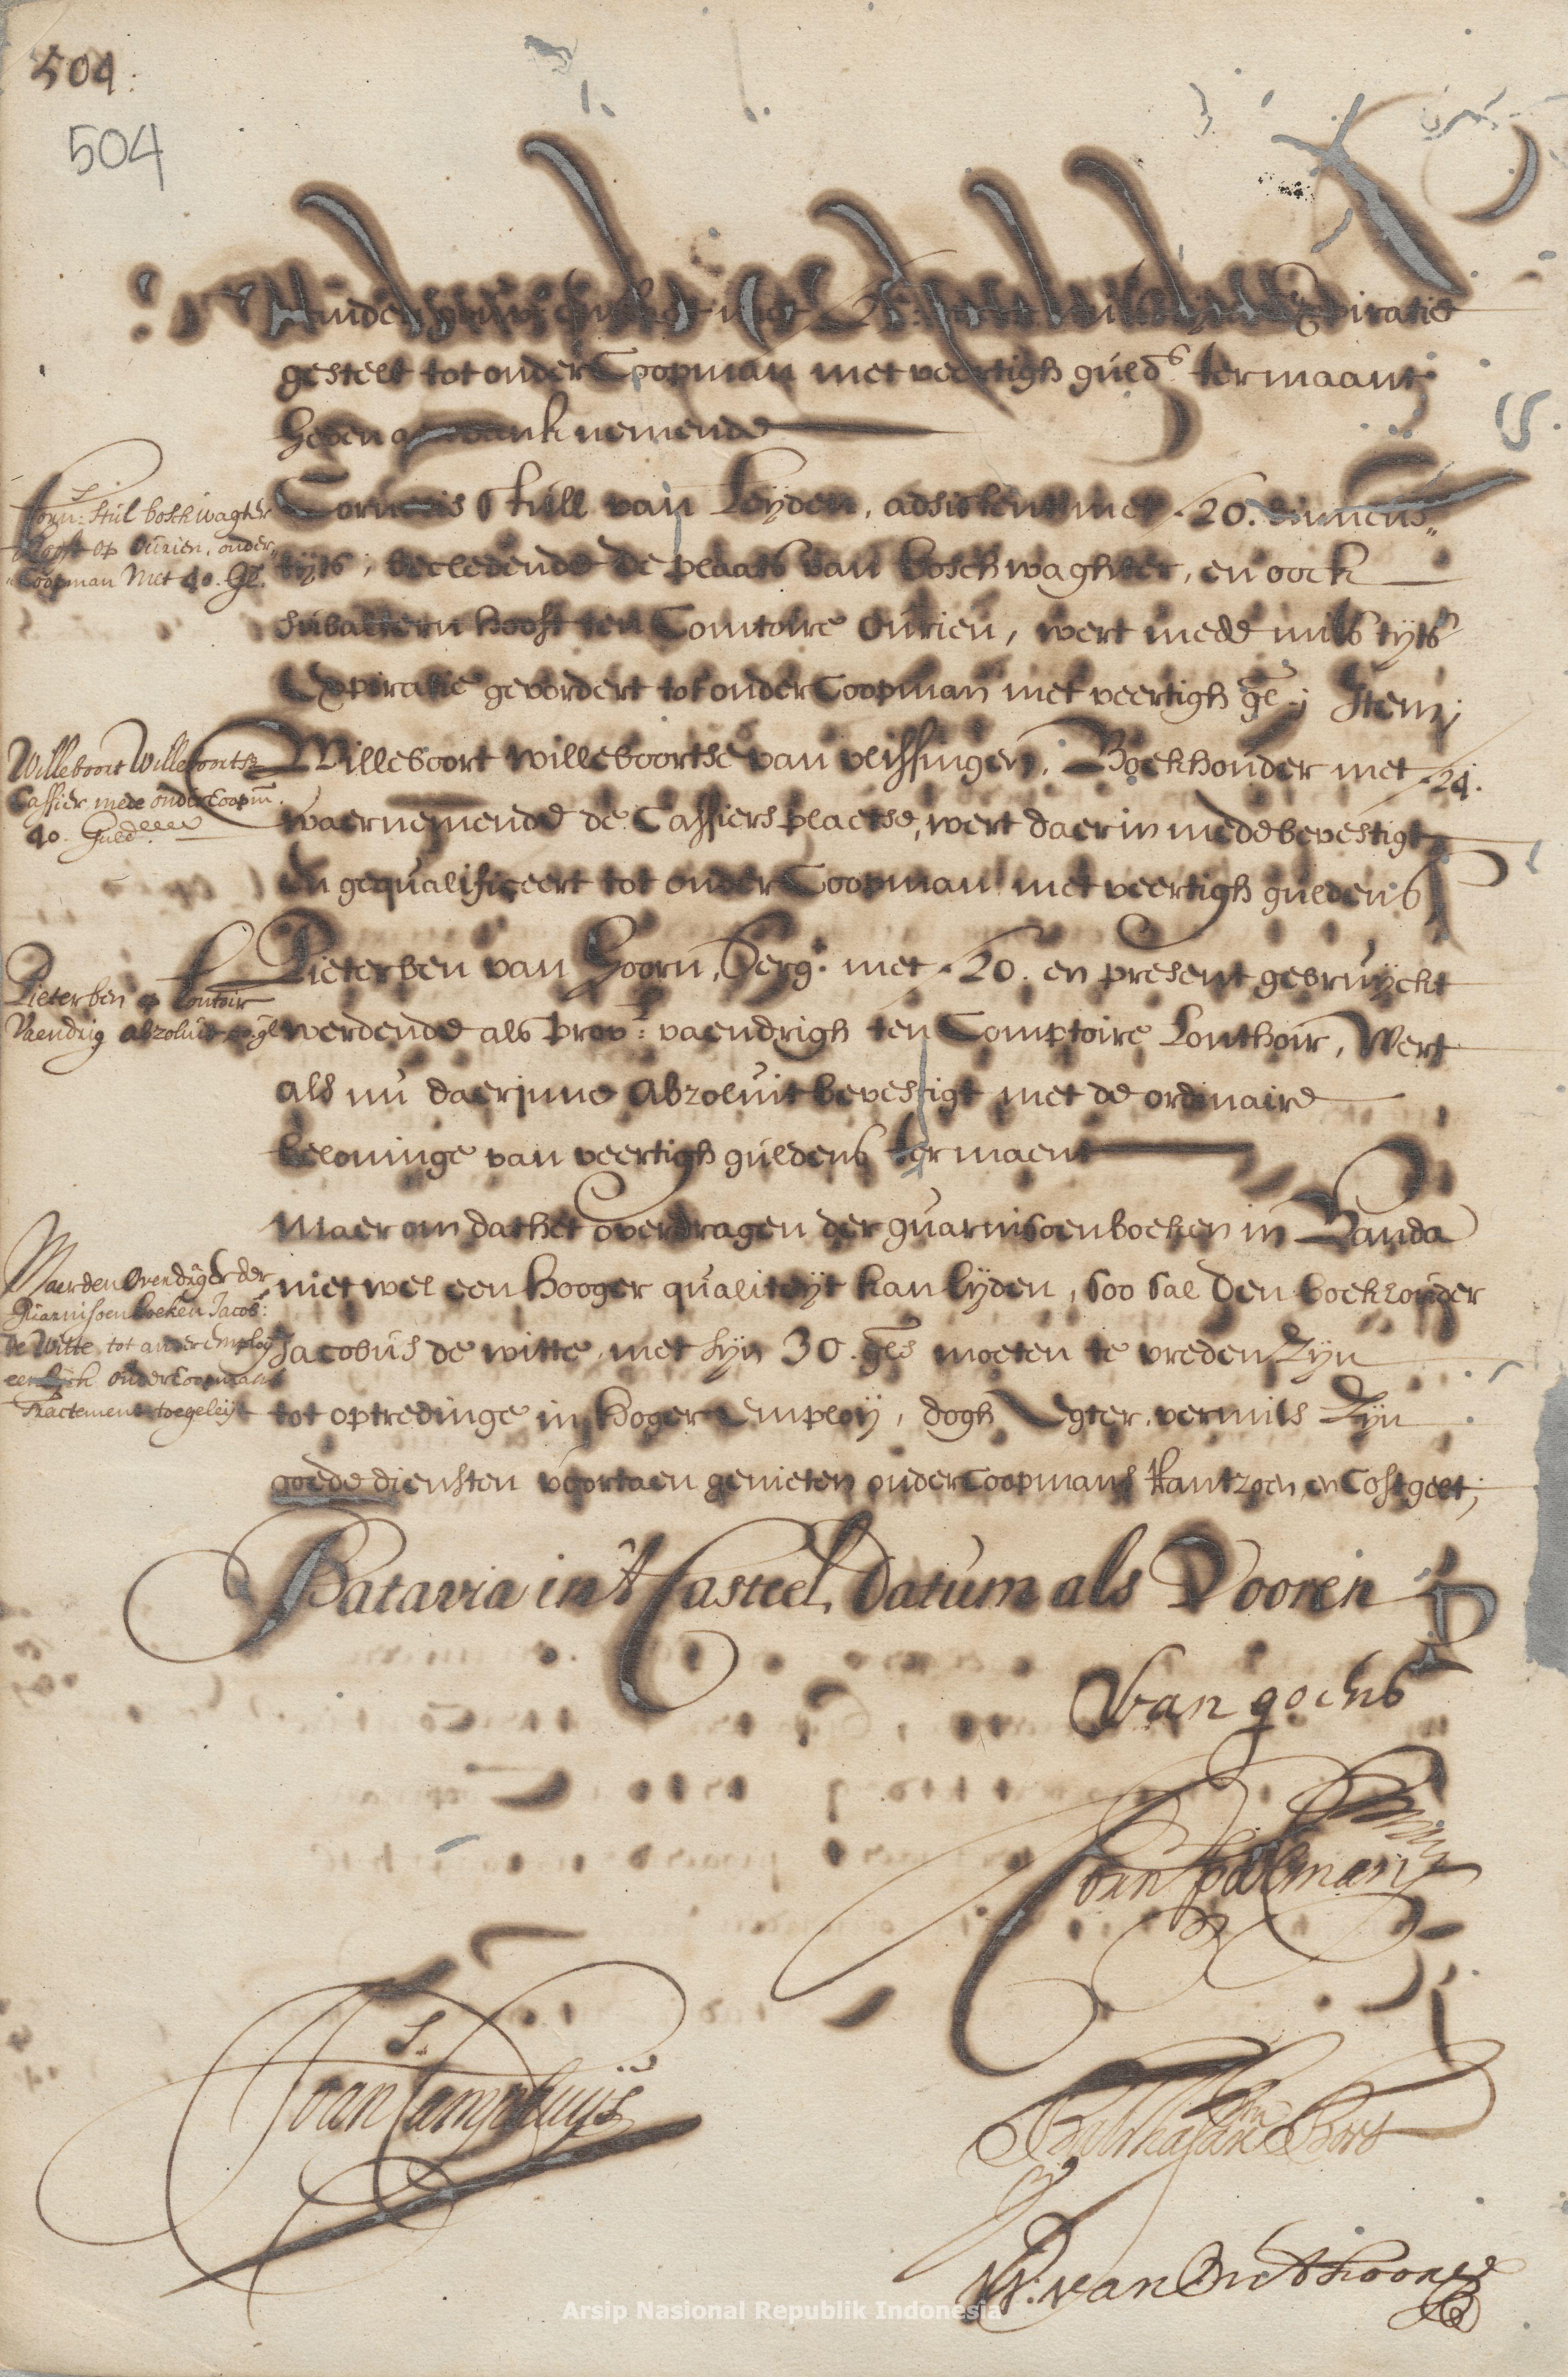 504:
504
gestelt tot onder Coopman met veertigh guld.s ter maant
nemende
Corn.s Stul boschwagter
op Ourien, onder
Coopman Met 40. Gl.
Cornelis Stull van Leyden, adsistent met f 20. binnens
tyts, becledende de plaats van boschwaghter, en oock
subaltern hooft ten Comtoire Ourien, wert mede mits tyts
Expiratie gevordert tot onder Coopman met veertigh gl.; Item;
Willeboort Willeboortsz
Cassier mede onder Coopm.
40. Guld.
Willeboort willeboortse van vlissingen, Boekhouder met f 24.
waernemende de Cassiers plaetse, wert daer in mede bevestigt
en gequalificeert tot onder Coopman met veertigh guldens
Pieter ben op Lontoir
Vaendrig absoluut 40. gl
Pieter ben van Hoorn, Serg.t met f 20. en present gebruyckt
werdende als prov.l vaendrigh ten Comptoire Lonthoir, Wert
als nu daerinne abzoluit bevestigt met de ordinaire
beloninge van veertigh guldens ter maent
Maer den Overdrager der
Guarnisoen boeken Jacob:
de Witte, tot ander Employ
eerst onder Coopmans
Tractement toegeleijt
Maer om dat het overdragen der guarnisoen boeken in Banda
niet wel een hooger qualiteyt kan lyden, soo sal den boekhouder
Jacobus de witte met syn 30. gls moeten te vreden Zyn
tot optredinge in hoger Employ, dogh Egter, vermits Zyn
goede diensten voortaen genieten onder Coopmans Rantzoen en Costgelt;
Batavia in't Casteel, Datum als Vooren
Van goens
Balthasar Bort
Joan Camphuys
W. van Outhoorn
Arsip Nasional Republik Indonesia